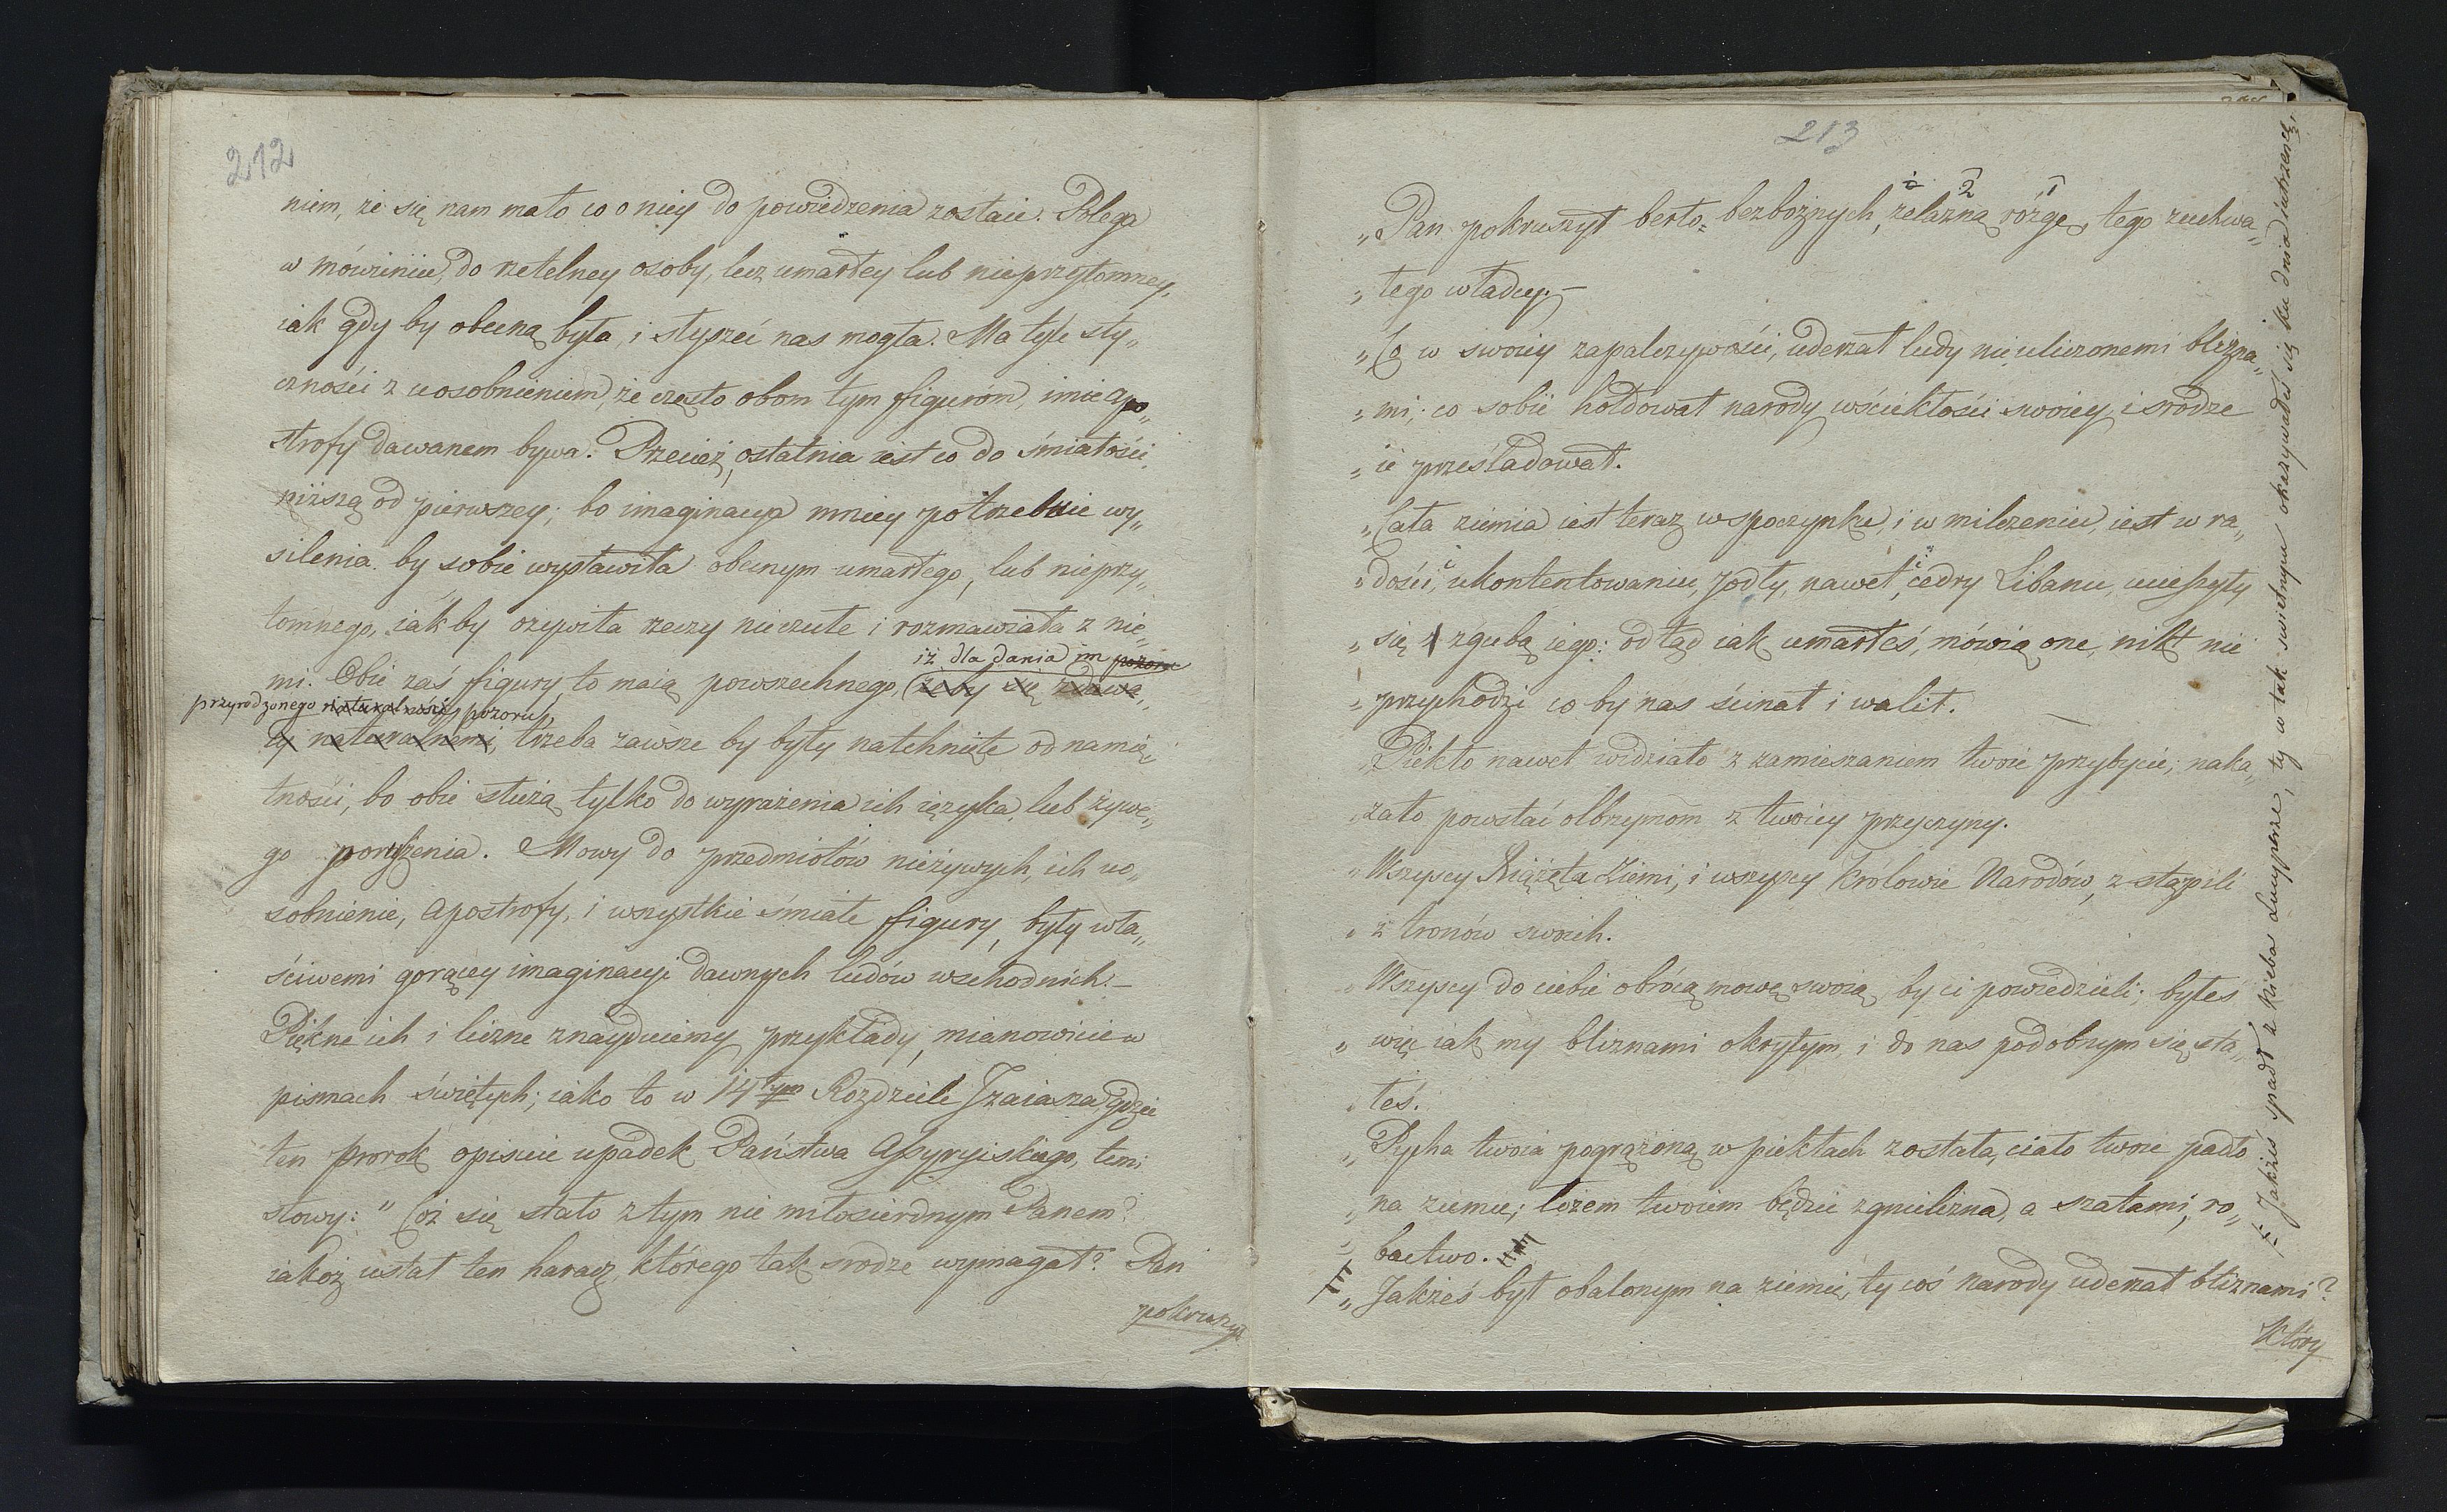 212
niem, że się nam mało co o niey do powiedzenia zostaie. Polega
w mówieniu, do rzetelney osoby, lecz umarłey lub nieprzytomney,
iak gdy by obecną była, i słyszeć nas mogła. Ma tyle sty„
czności z uosobnieniem, że często obom tym figuróm, imie apo„
strofy dawanem bywa. Przecież, ostatnia iest co do śmiałości,
niższą od pierwszey; bo imaginacya mniey potrzebuie wy„
silenia by sobie wystawiła obecnym umarłego, lub nieprzy„
tomnego, iak by ożywiła rzeczy nieczułe i rozmawiała z nie„
iż dla dania im pozoru
mi. Obie zaś figury to maią powszechnego, (żeby się zdawa„
przyrodzonego naturalności pozoru,
ły naturalnemi, trzeba zawsze by były natchnięte od namię„
tności, bo obie służą tylko do wyrażenia ich ięzyka, lub żywe„
go poruszenia. Mowy do przedmiotów nieżywych, ich uo„
sobnienie, apostrofy, i wszystkie śmiałe figury, były wła„
ściwemi gorącey imaginacyi dawnych ludów wschodnich.—
Piękne ich i liczne znayduiemy przykłady, mianowicie w
pismach świętych; iako to w 14tym Rozdziele Izaiasza, gdzie
ten prorok opisuie upadek Państwa Assyryiskiego, temi
słowy: „ Cóż się stało z tym nie miłosierdnym Panem?
iakoż ustał ten haracz, którego tak srodze wymagał? Pan
pokruszył
213
i 2 1
„Pan pokruszył berło bezbożnych, żelazną rózgę, tego zuchwa„
„ łego władcy.—
„Co w swoiey zapalczywości, uderzał ludy nieuliczonemi blizna„
„ mi; co sobie hołdował narody wściekłości swoiey, i srodze
„ ie prześladował.
„Cała ziemia iest teraz w spoczynku, i w milczeniu, iest w ra„
„dości, i ukontentowaniu, Jodły, nawet, i cedry Libanu, cieszyły
„ się z zgubą iego: odtąd iak umarłeś, mówią one, nikt nie
„ przychodzi co by nas ścinał i walił.
„Piekło nawet widziało z zamieszaniem twoie przybycie; naka„
„zało powstać olbrzymom z twoiey przyczyny.
„Wszyscy Książęta Ziemi, i wszyscy Królowie Narodów, zstąpili
„ z tronów swoich.
„Wszyscy do ciebie obrócą mowę swoią, by ci powiedzieli; byłeś
„ więc iak my bliznami okrytym, i do nas podobnym się sta„
„ łeś.
„Pycha twoia pogrążoną w piekłach została, ciało twoie padło
„ na ziemię; łożem twoiem będzie zgnilizna, a szatami, ro„
„ bactwo.
„Jakżeś był obalonym na ziemię, ty coś narody uderzał bliznami?
Który
Jakżeś spadł z Nieba Lucyperze, ty w tak świetnym okazywałeś się ku dnia iutrzence,